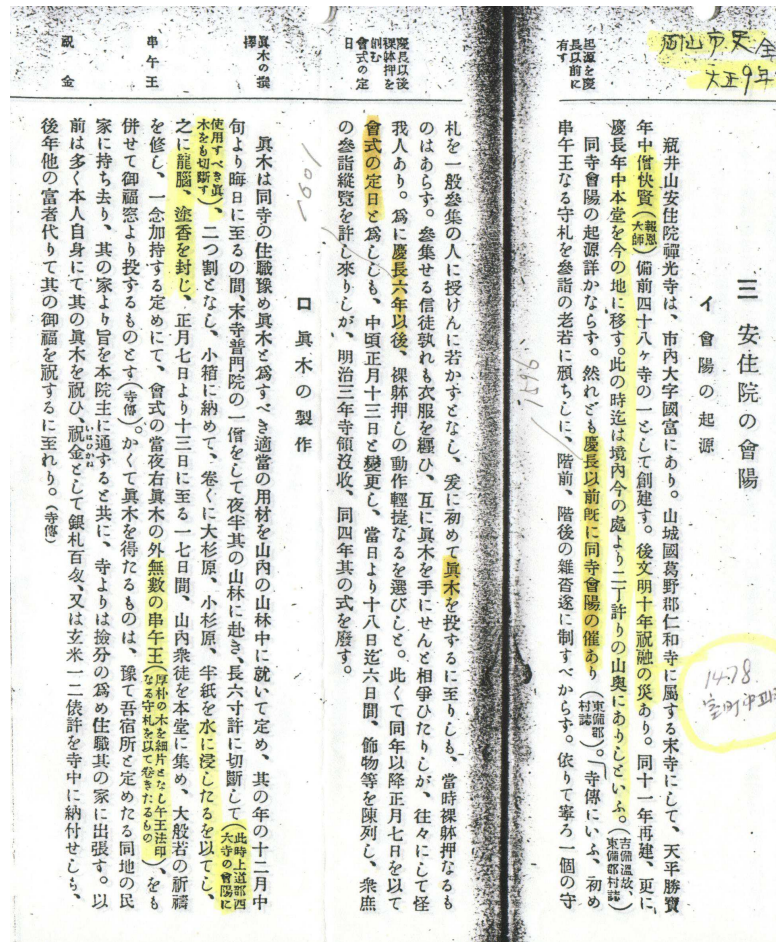 岡山市史
大正9年
三 安住院の會陽
イ 會陽の起源
起源を慶
長以前に
有す
瓶井山安住院禪光寺は、市內大字國富にあり。山城國葛野郡仁和寺に屬する末寺にして、天平勝寶
年中僧快賢(報恩大師)備前四十八ヶ寺の一として創建す。後文明十年祝融の災あり。同十一年再建、更に
慶長年中本堂を今の地に移す。此の時迄は境內今の處より二丁許りの山奧にありしといふ。(吉備溫故、東備郡村誌)
同寺會陽の起源詳かならず。然れども慶長以前既に同寺會陽の催あり(東備郡村誌)。寺傳にいふ、初め
串午王なる守札を參詣の老若に頒ちしに、階前、階後の雜沓遂に制すべからず。依りて寧ろ一個の守
1478
室町中
1596
慶長以後
裸躰押を
刱む
會式の定
日
札を一般參集の人に授けんに若かずとなし、爰に初めて眞木を投するに至りしも、當時裸躰押なるも
のはあらず。參集せる信徒孰れも衣服を纒ひ、互に眞木を手にせんと相爭ひたりしが、往々にして怪
我人あり。爲に慶長六年以後、裸躰押しの動作輕捷なるを選びしと。此くて同年以降正月七日を以て
會式の定日と爲ししも、中頃正月十三日と變更し、當日より十八日迄六日間、飾物等を陳列し、衆庶
の參詣縱覽を許し來りしが、明治三年寺領沒收、同四年其の式を廢す。
1601
ロ 眞木の製作
眞木の撰
擇
眞木は同寺の住職豫め眞木と爲すべき適當の用材を山內の山林中に就いて定め、其の年の十二月中
旬より晦日に至るの間、末寺普門院の一僧をして夜半其の山林に赴き、長六寸許に切斷して(此時上道郡西大寺の會陽に
使用すべき眞木をも切斷す)、二つ割となし、小箱に納めて、卷くに大杉原、小杉原、半紙を水に浸したるを以てし、
之に龍腦、塗香を封じ、正月七日より十三日に至る一七日間、山內衆徒を本堂に集め、大般若の祈禱
串午王
を修し、一念加持する定めにて、會式の當夜右眞木の外無數の串午王(厚朴の木を細片となし午王法印なる守札を以て卷きたるもの)、をも
併せて御福窓より投するものとす(寺傳)。かくて眞木を得たるものは、豫て吾宿所と定めたる同地の民
家に持ち去り、其の家より旨を本院主に通すると共に、寺よりは撿分の爲め住職其の家に出張す。以
祝金
前は多く本人自身にて其の眞木を祝ひ、祝金として銀札百匁、又は玄米一二俵許を寺中に納付せしも、
いはひかね
後年他の富者代りて其の御福を祝するに至れり。(寺傳)